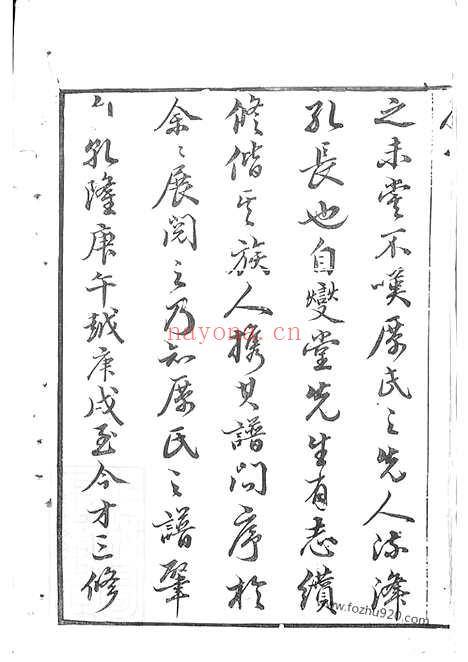 之未嘗不嘆厲氏之先人流澤
孔長也自燮堂先生有志續
修偕其族人携其譜問序於
余〻展閱之乃知厲氏之譜肇
乾隆庚午越庚戌至今才三修
nayona.cn
www.fozhu920.com